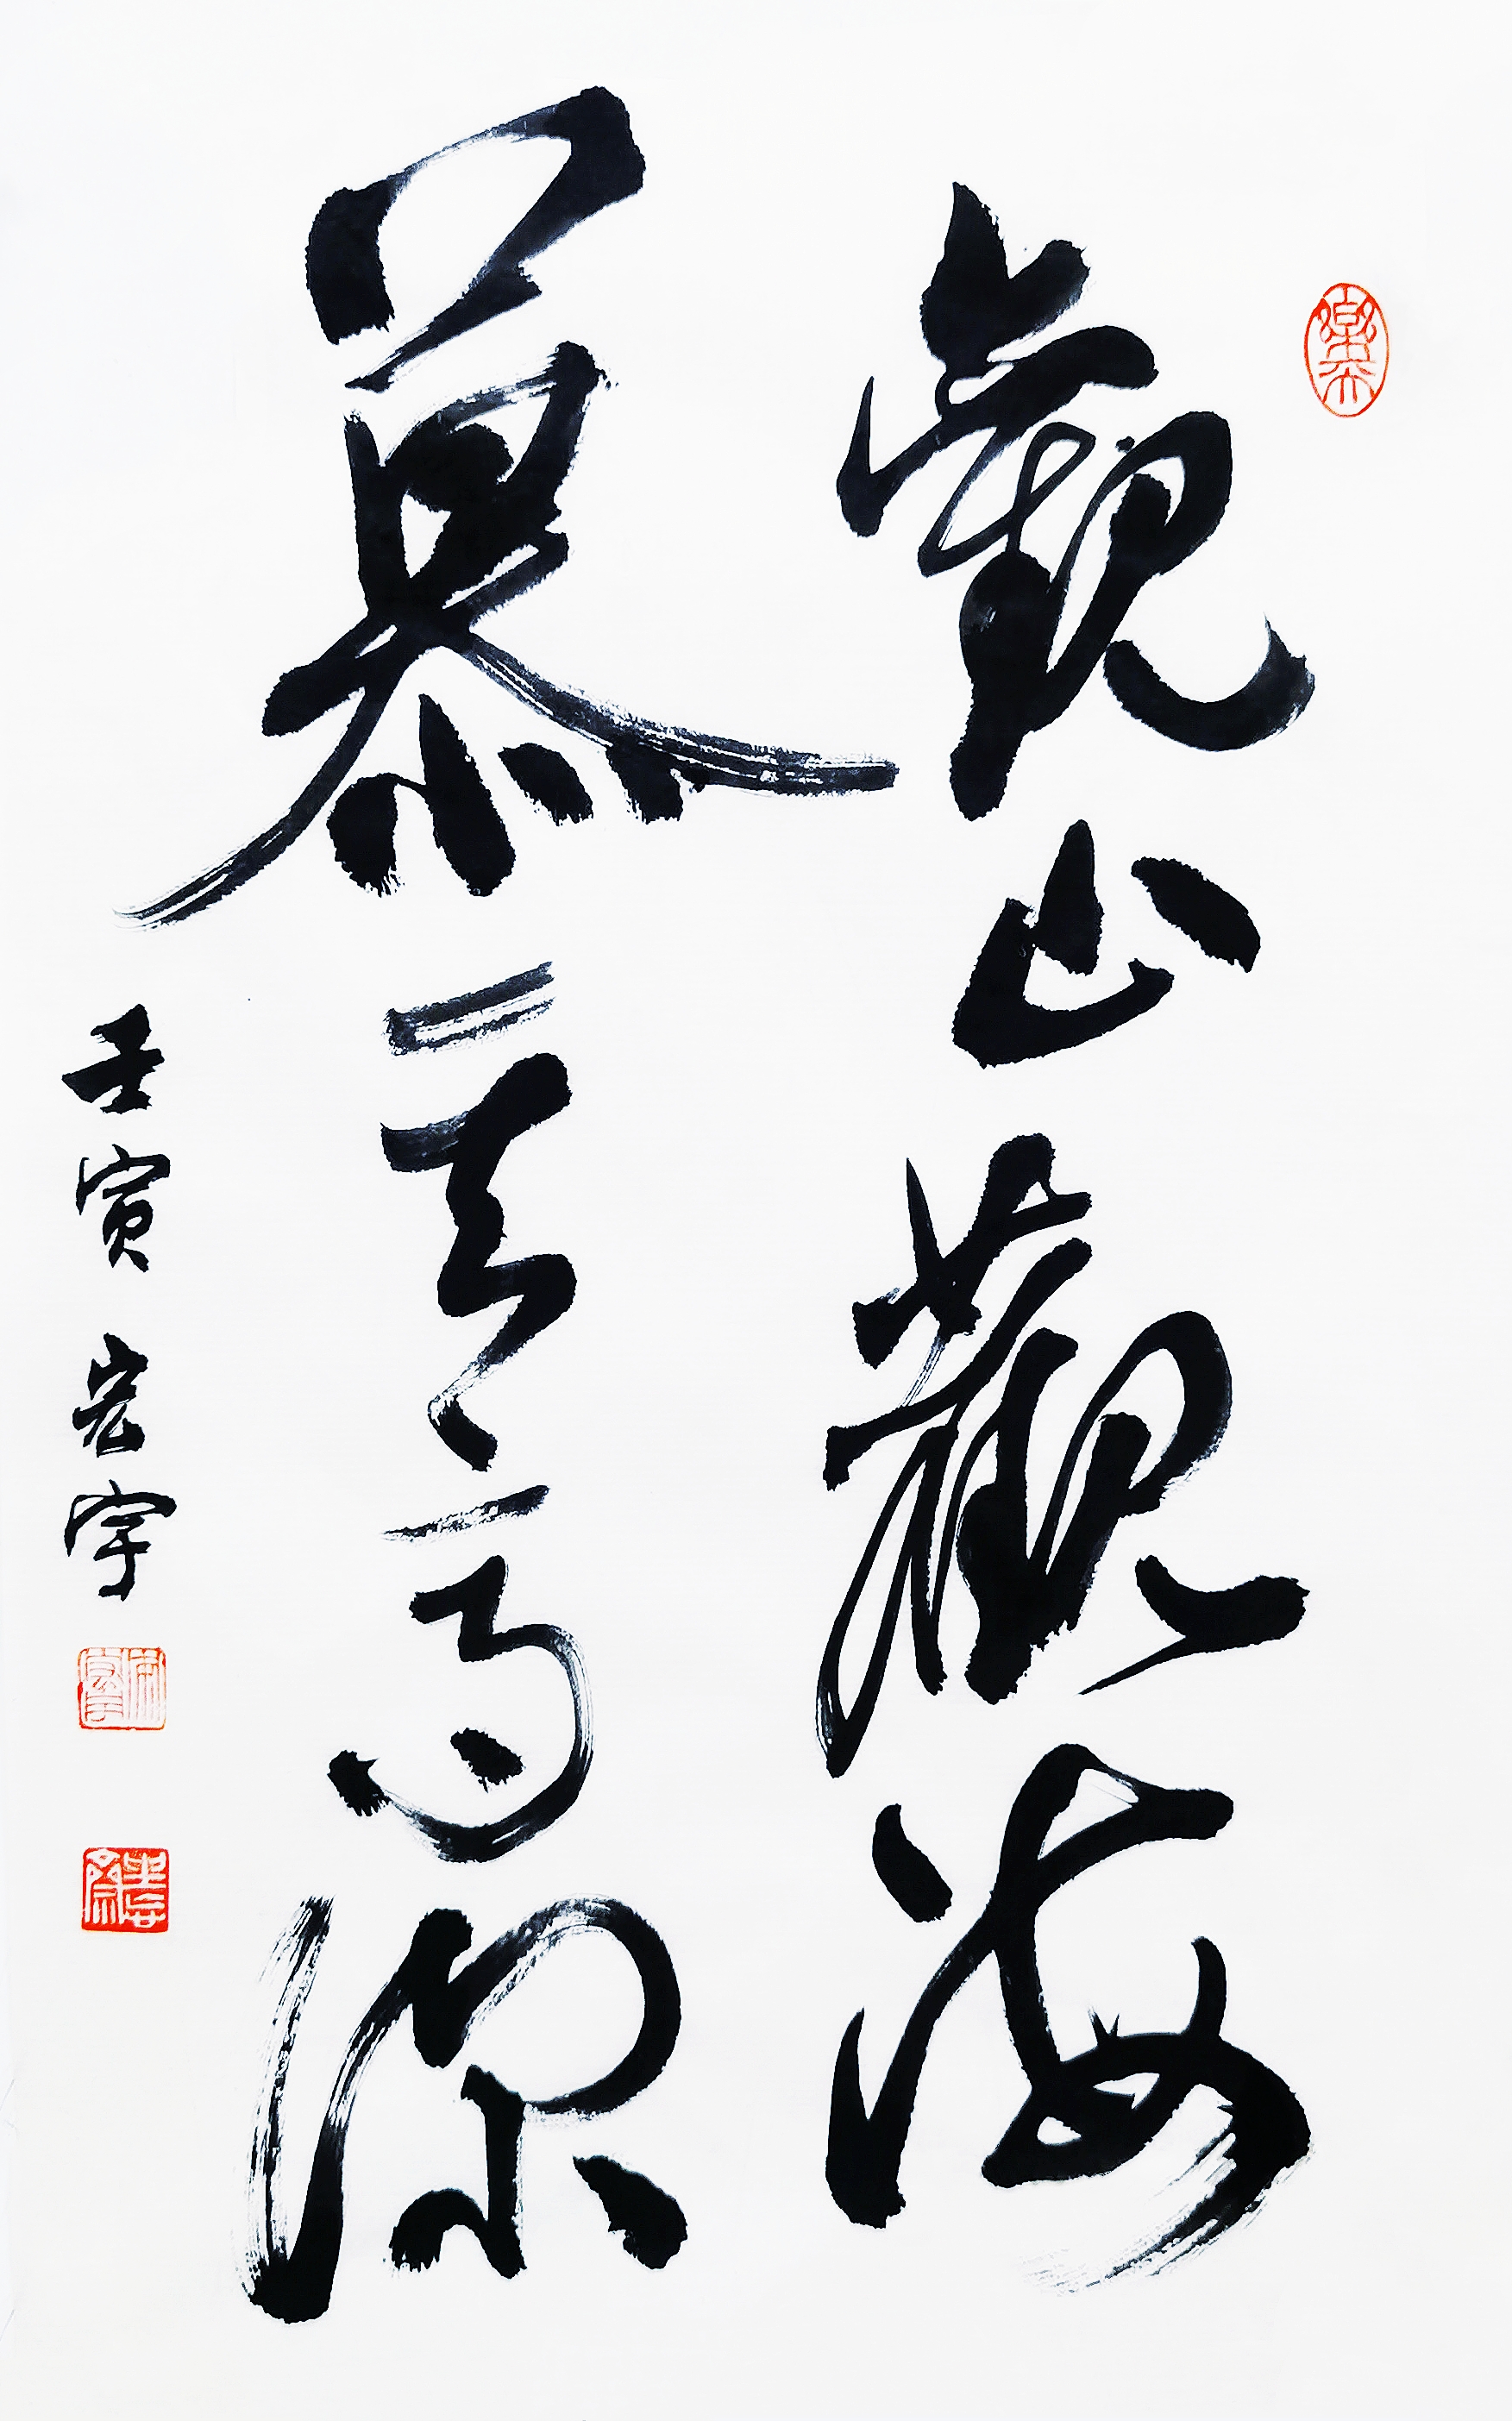 觀山觀海
慕其高深
壬寅 宏宇